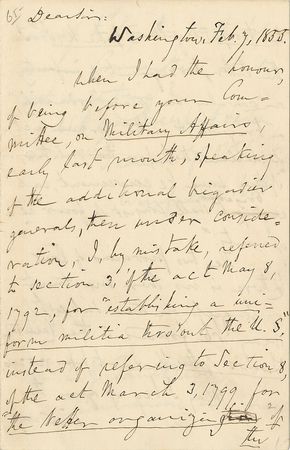 65 Dear Sir:
Washington, Feb. 7, 1855.
When I had the honour,
of being before your Com-
mittee, on Military Affairs,
early last month, speaking
of the additional brigadier
generals, then under conside-
ration, I, by mistake, referred
to section 3, of the act May 8,
1792, for "establishing a uni-
form militia thro'out the U. S."
instead of referring to Section 8,
of the act March 3, 1799, for
"the better organizing of
the